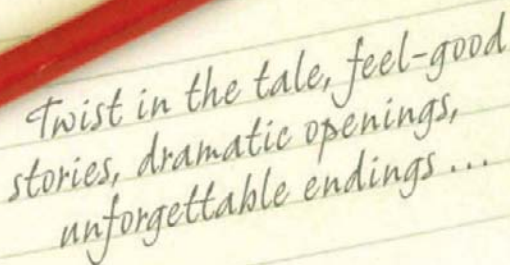 Twist in the tale, feel-good
stories, dramatic openings,
unforgettable endings ...